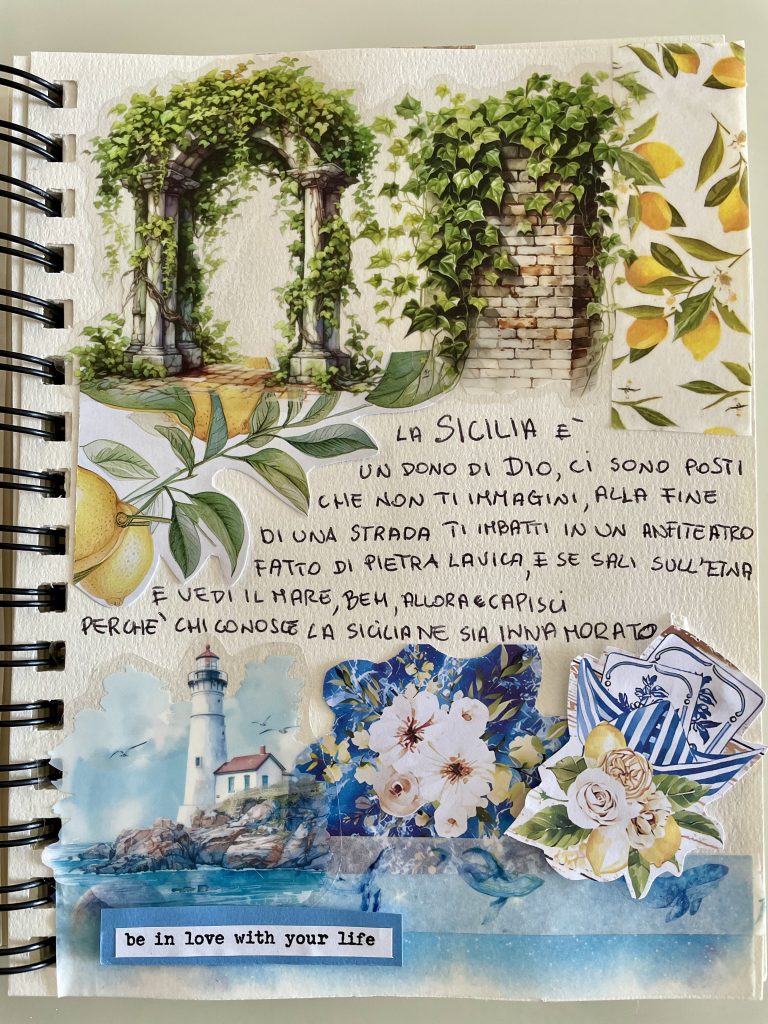 LA SICILIA È
UN DONO DI DIO, CI SONO POSTI
CHE NON TI IMMAGINI, ALLA FINE
DI UNA STRADA TI IMBATTI IN UN ANFITEATRO
FATTO DI PIETRA LAVICA, E SE SALI SULL'ETNA
E VEDI IL MARE, BEH, ALLORA CAPISCI
PERCHE' CHI CONOSCE LA SICILIA NE SIA INNAMORATO
be in love with your life